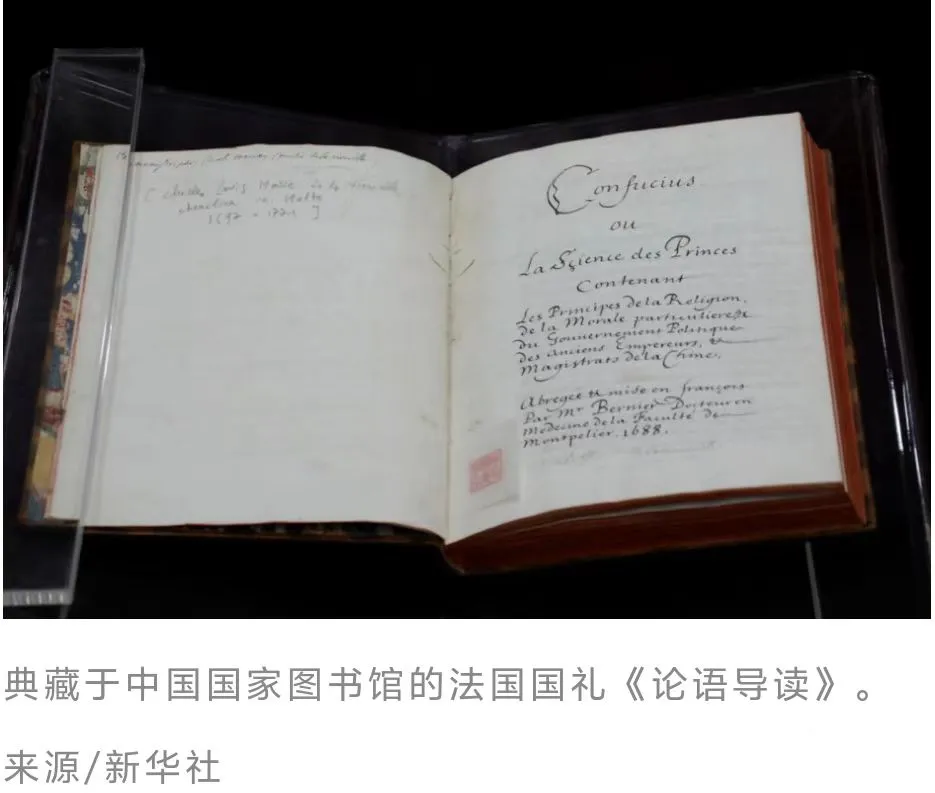 Charles Louis Marie de la
Malta
Confucius
ou
La Sçience des Princes
Contenant
Les Principes de la Religion,
de la Morale particuliere, &
du Gouvernement Politique
des anciens Empereurs, &
Magistrats de la Chine.
Abregée & mise en françois
Par Mr Bernier Docteur en
Medecine de la Faculté de
Montpelier. 1688.
典藏于中国国家图书馆的法国国礼《论语导读》。
来源/新华社